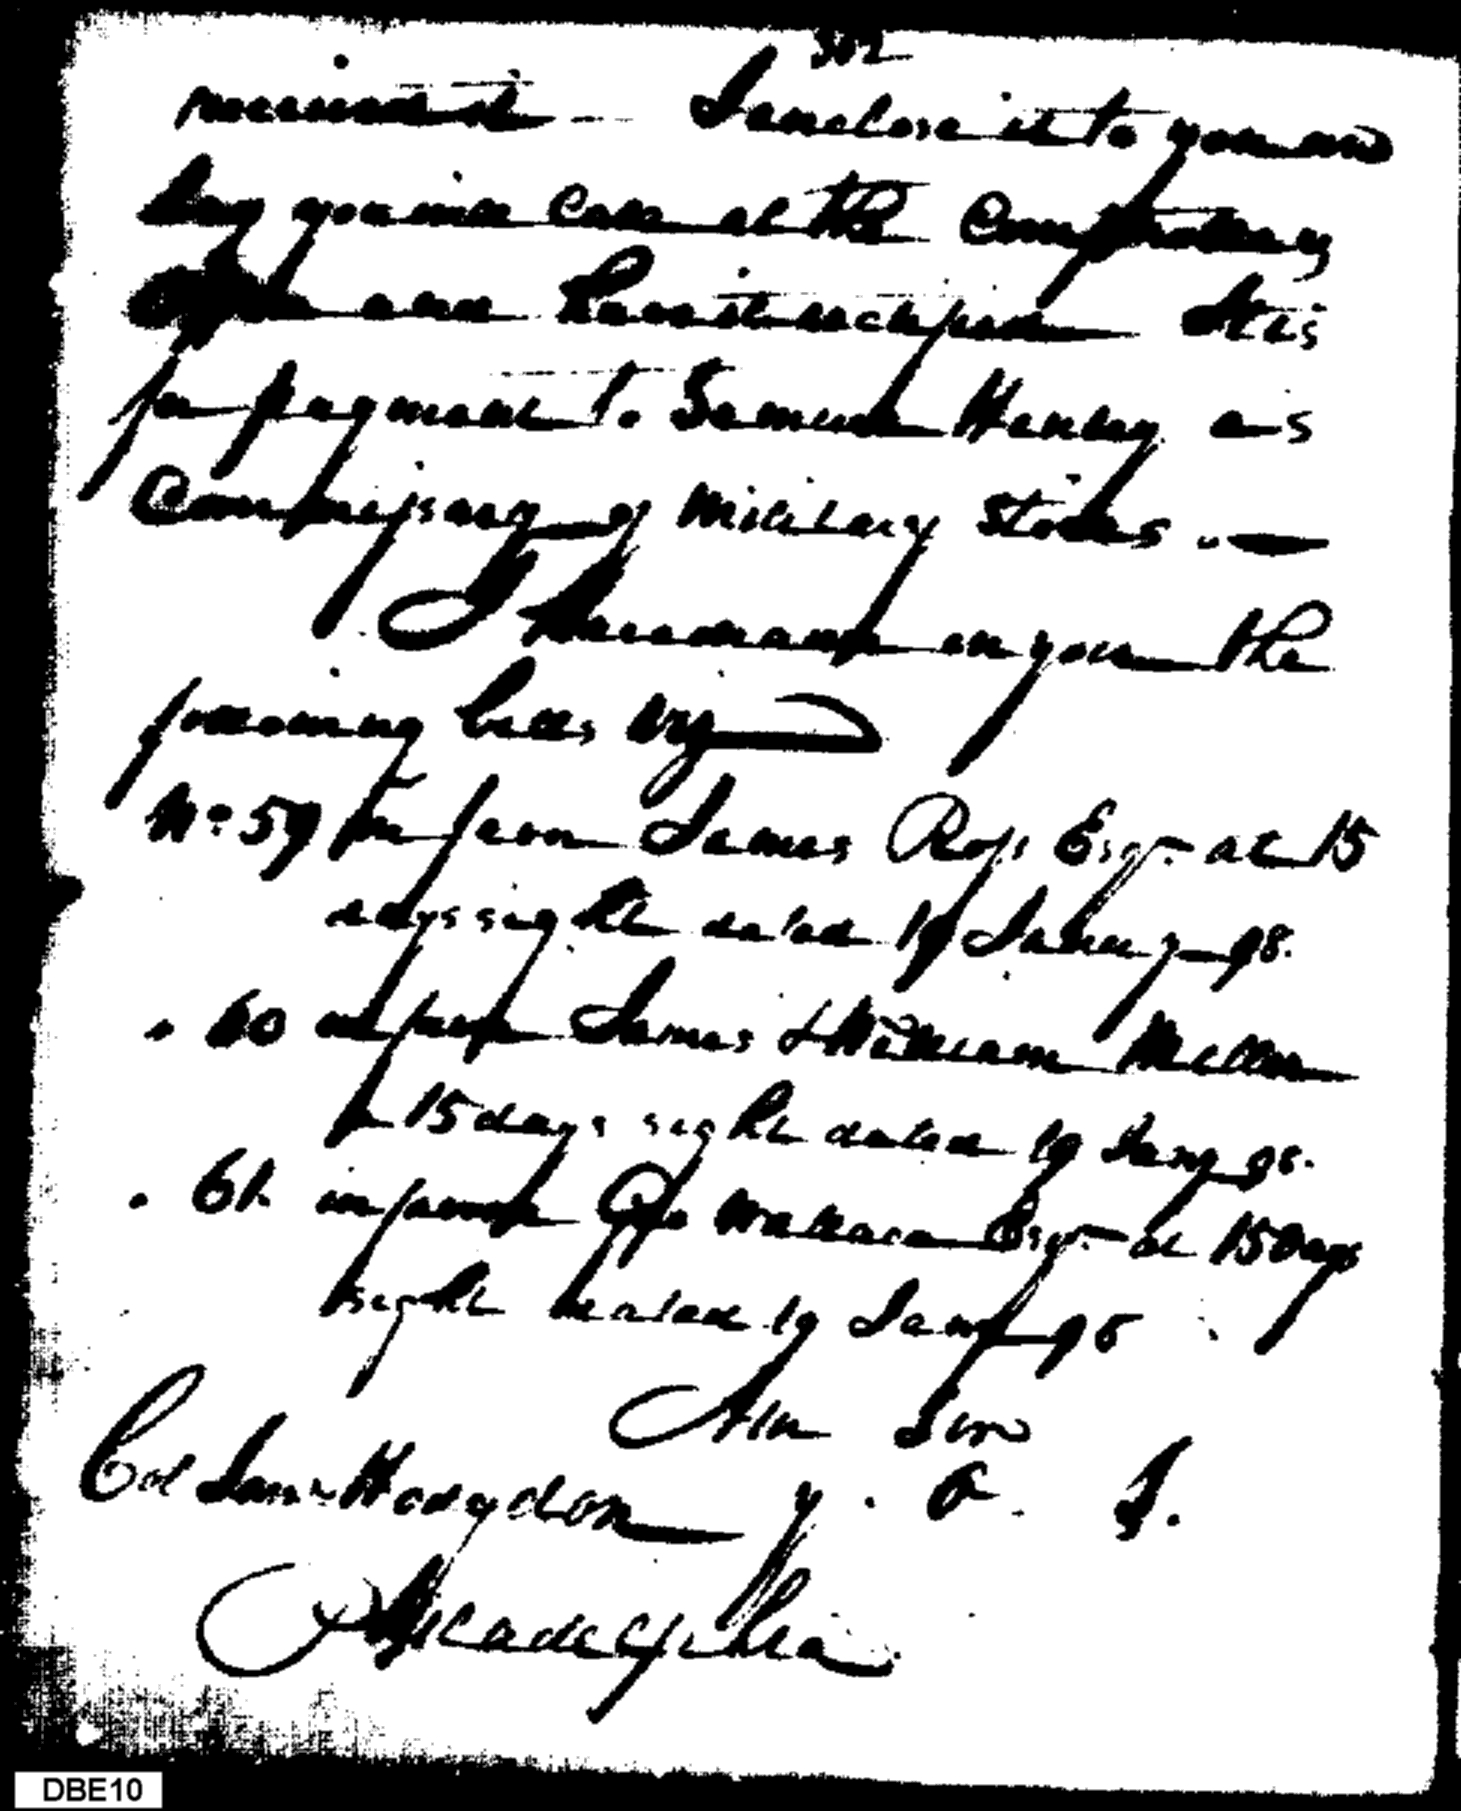 302
received - I enclose it to you and
beg you will call at the Comptrollers
Office and have it rectified It is
for payment to Samuel Henley as
Commissary of Military Stores . —
I have drawn on you the
following bills Viz
No 59 in favor James Ross Esqr. at 15
days sight dated 19 Jany 98.
" 60 in favor James & William Miller
15 days sight dated 19 Jany 98.
" 61. in favor Geo Wallace Esqr. at 15 Days
sight dated 19 Jany 98
I Am Sir
Col Saml Hodgdon y. O. S.
Philadelphia
DBE10